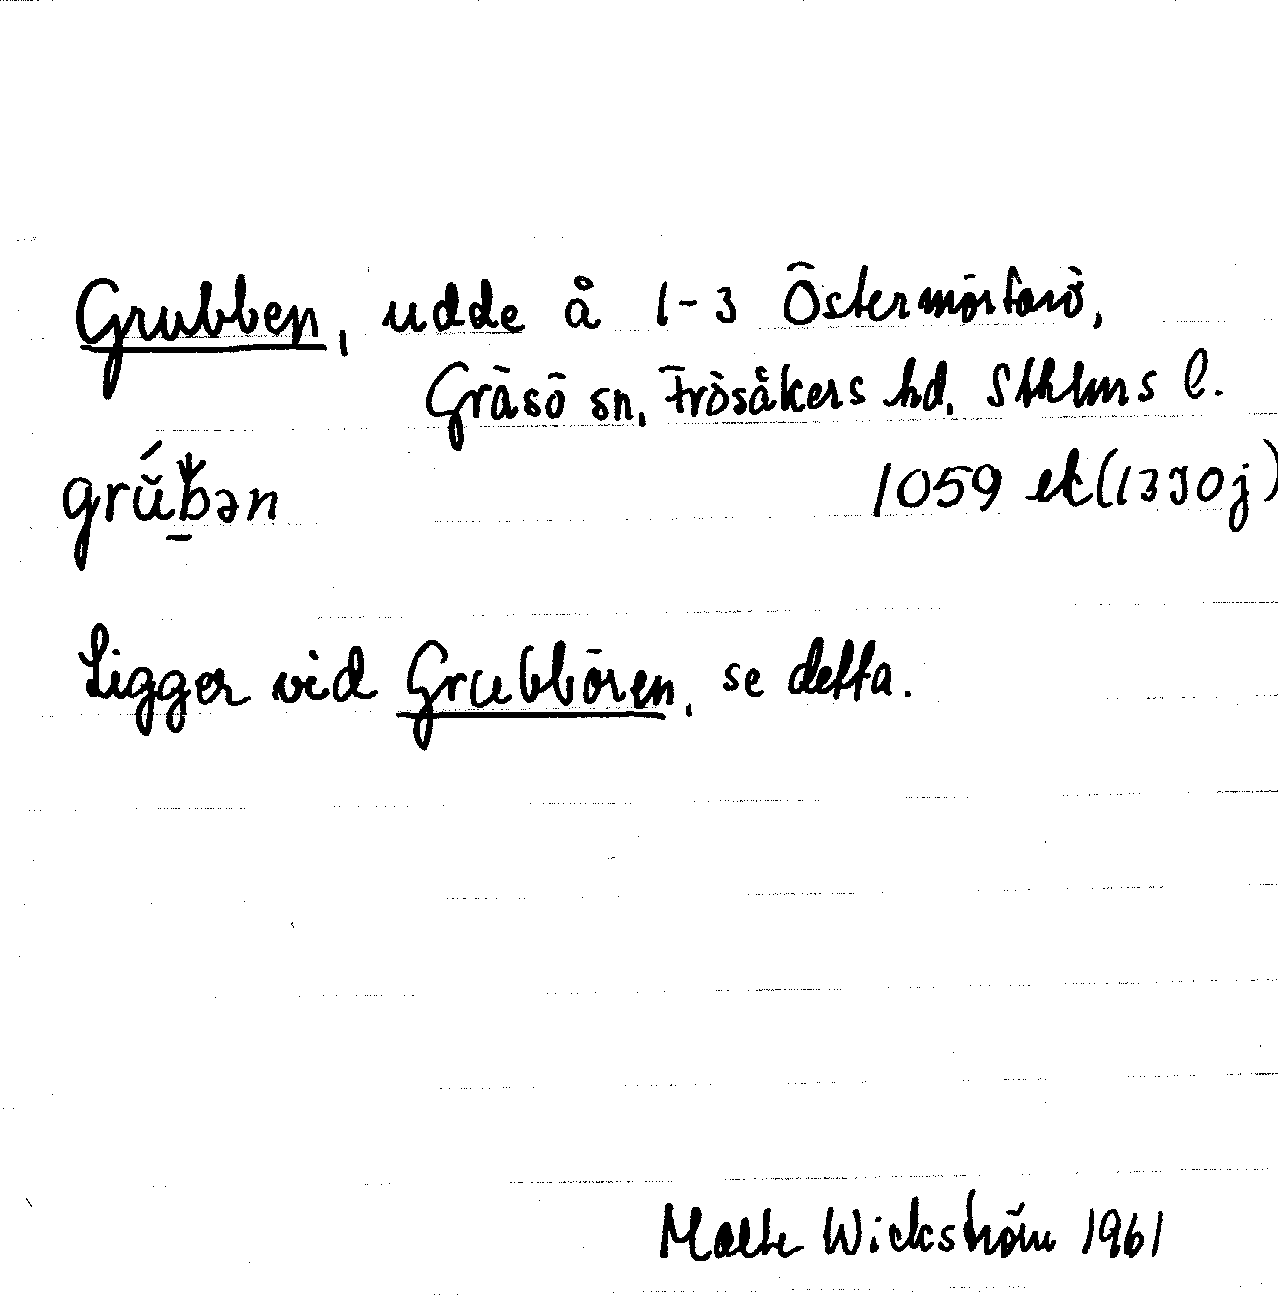 Grubben, udde å 1-3 Östermörtarö,
Gräsö sn, Frösåkers hd, Sthlms l.
grúbən 1059 ek (1330j)
Ligger vid Grubbören, se detta.
Malte Wickström 1961